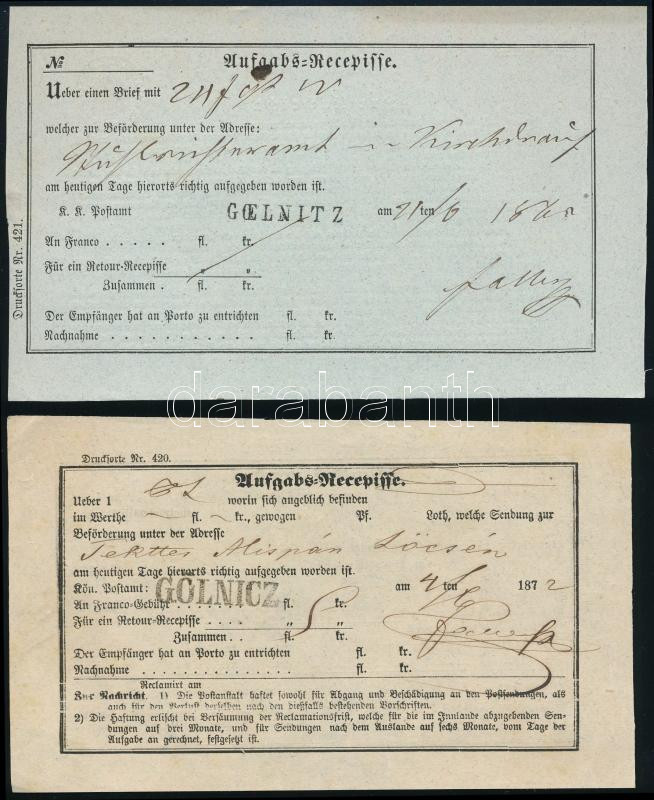 №
Aufgabs-Recepisse.
Ueber einen Brief mit
welcher zur Beförderung unter der Adresse:
Stuhlrichteramt in Kirchdrauf
am heutigen Tage hierorts richtig aufgegeben worden ist.
K. K. Postamt GŒLNITZ am 21/ten 6 186
An Franco . . . . . fl. kr.
Für ein Retour-Recepisse „ „
Zusammen . fl. kr.
Der Empfänger hat an Porto zu entrichten fl. kr.
Nachnahme . . . . . . . . . . . fl. kr.
Drucksorte Nr. 421.
darabanth
Drucksorte Nr. 420.
Aufgabs-Recepisse.
Ueber 1 worin sich angeblich befinden
im Werthe – fl. – kr., gewogen Pf. Loth, welche Sendung zur
Beförderung unter der Adresse
Tekttes Alispán Löcsén
am heutigen Tage hierorts richtig aufgegeben worden ist.
Kön. Postamt: GÖLNICZ am 4/ten 9 1872
An Franco-Gebühr . . . . . fl. 5 kr.
Für ein Retour-Recepisse . . . „ „
Zusammen . . fl. kr.
Der Empfänger hat an Porto zu entrichten fl. kr.
Nachnahme . . . . . . . . . . . . . fl. kr.
Reclamirt am
Zur Nachricht. 1) Die Postanstalt haftet sowohl für Abgang und Beschädigung an den Postsendungen, als
auch für den Verlust derselben nach den dießfalls bestehenden Vorschriften.
2) Die Haftung erlischt bei Versäumung der Reclamationsfrist, welche für die im Innlande abzugebenden Sen-
dungen auf drei Monate, und für Sendungen nach dem Auslande auf sechs Monate, vom Tage der
Aufgabe an gerechnet, festgesetzt ist.